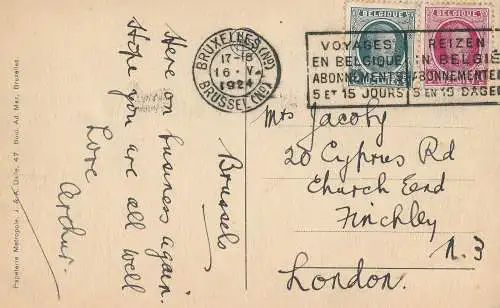 BELGIQUE
BELGIQUE
BRUXELLES (NO)
17-18
16 · V
1924
BRUSSEL (NO)
VOYAGEZ
EN BELGIQUE
ABONNEMENTS
5 ET 15 JOURS
REIZEN
IN BELGIË
ABONNEMENTEN
5 EN 15 DAGEN
Brussels
Here on business again.
Hope you are all well
Love
Arthur.
Mrs Jacoby
20 Cyprus Rd
Church End
Finchley
N.3
London.
Papeterie Metropole, J. & A. Dixle, 47 Boul. Ad. Max, Bruxelles.